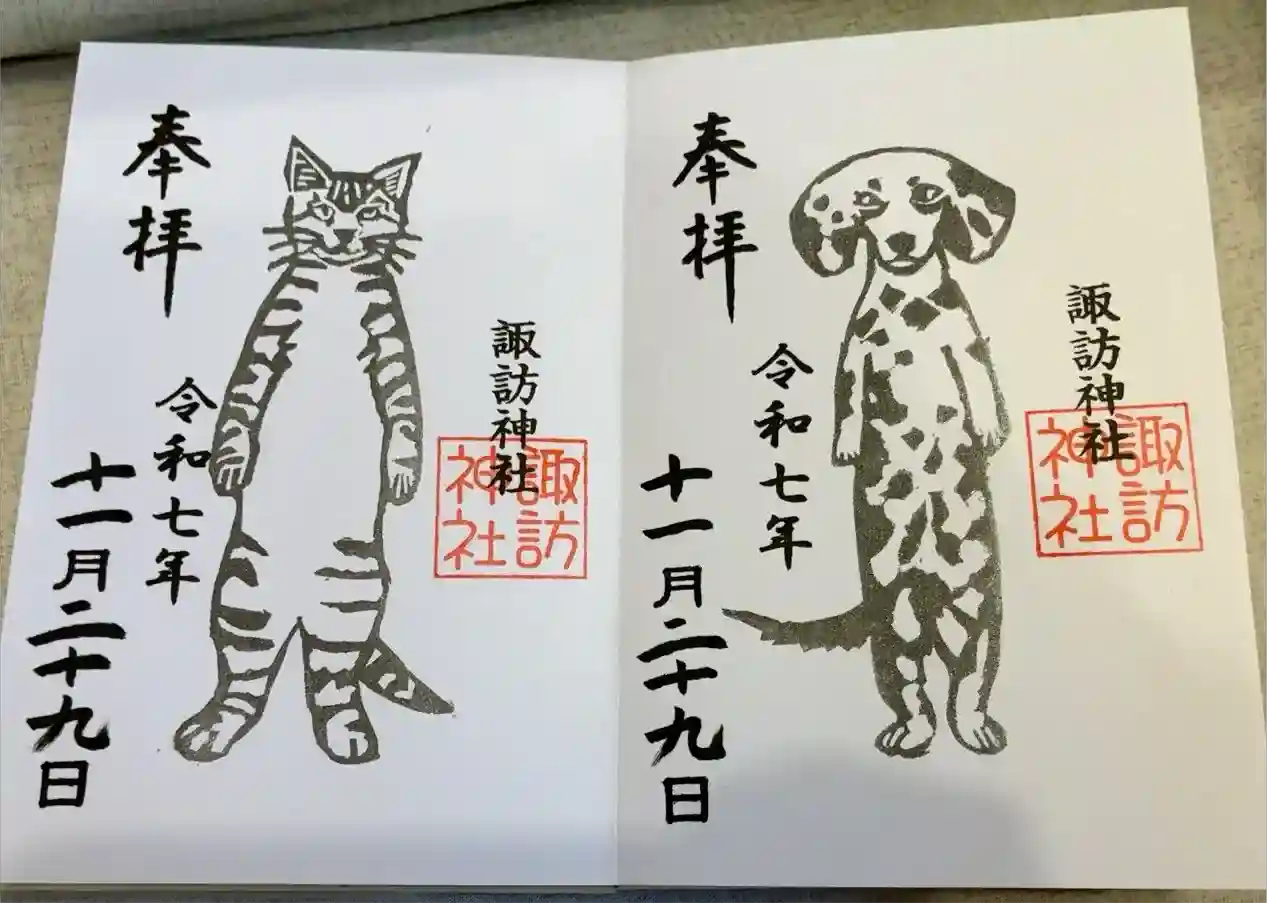 奉拝
令和七年
十一月二十九日
諏訪神社
諏訪
神社
奉拝
令和七年
十一月二十九日
諏訪神社
諏訪
神社